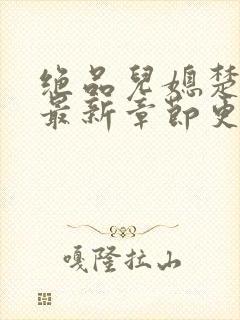 绝品儿媳楚
最新章节更
嘎隆拉山